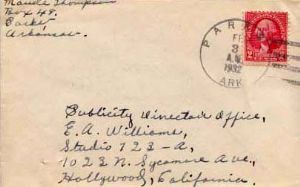 Maude Thompson
Box 48,
Parks
Arkansas.
PARKS
FE
3
A.M.
1932
ARK
2
Publicity Director Office,
E. A. Williams,
Studio 123-A,
1023 N. Sycamore Ave,
Hollywood, California.